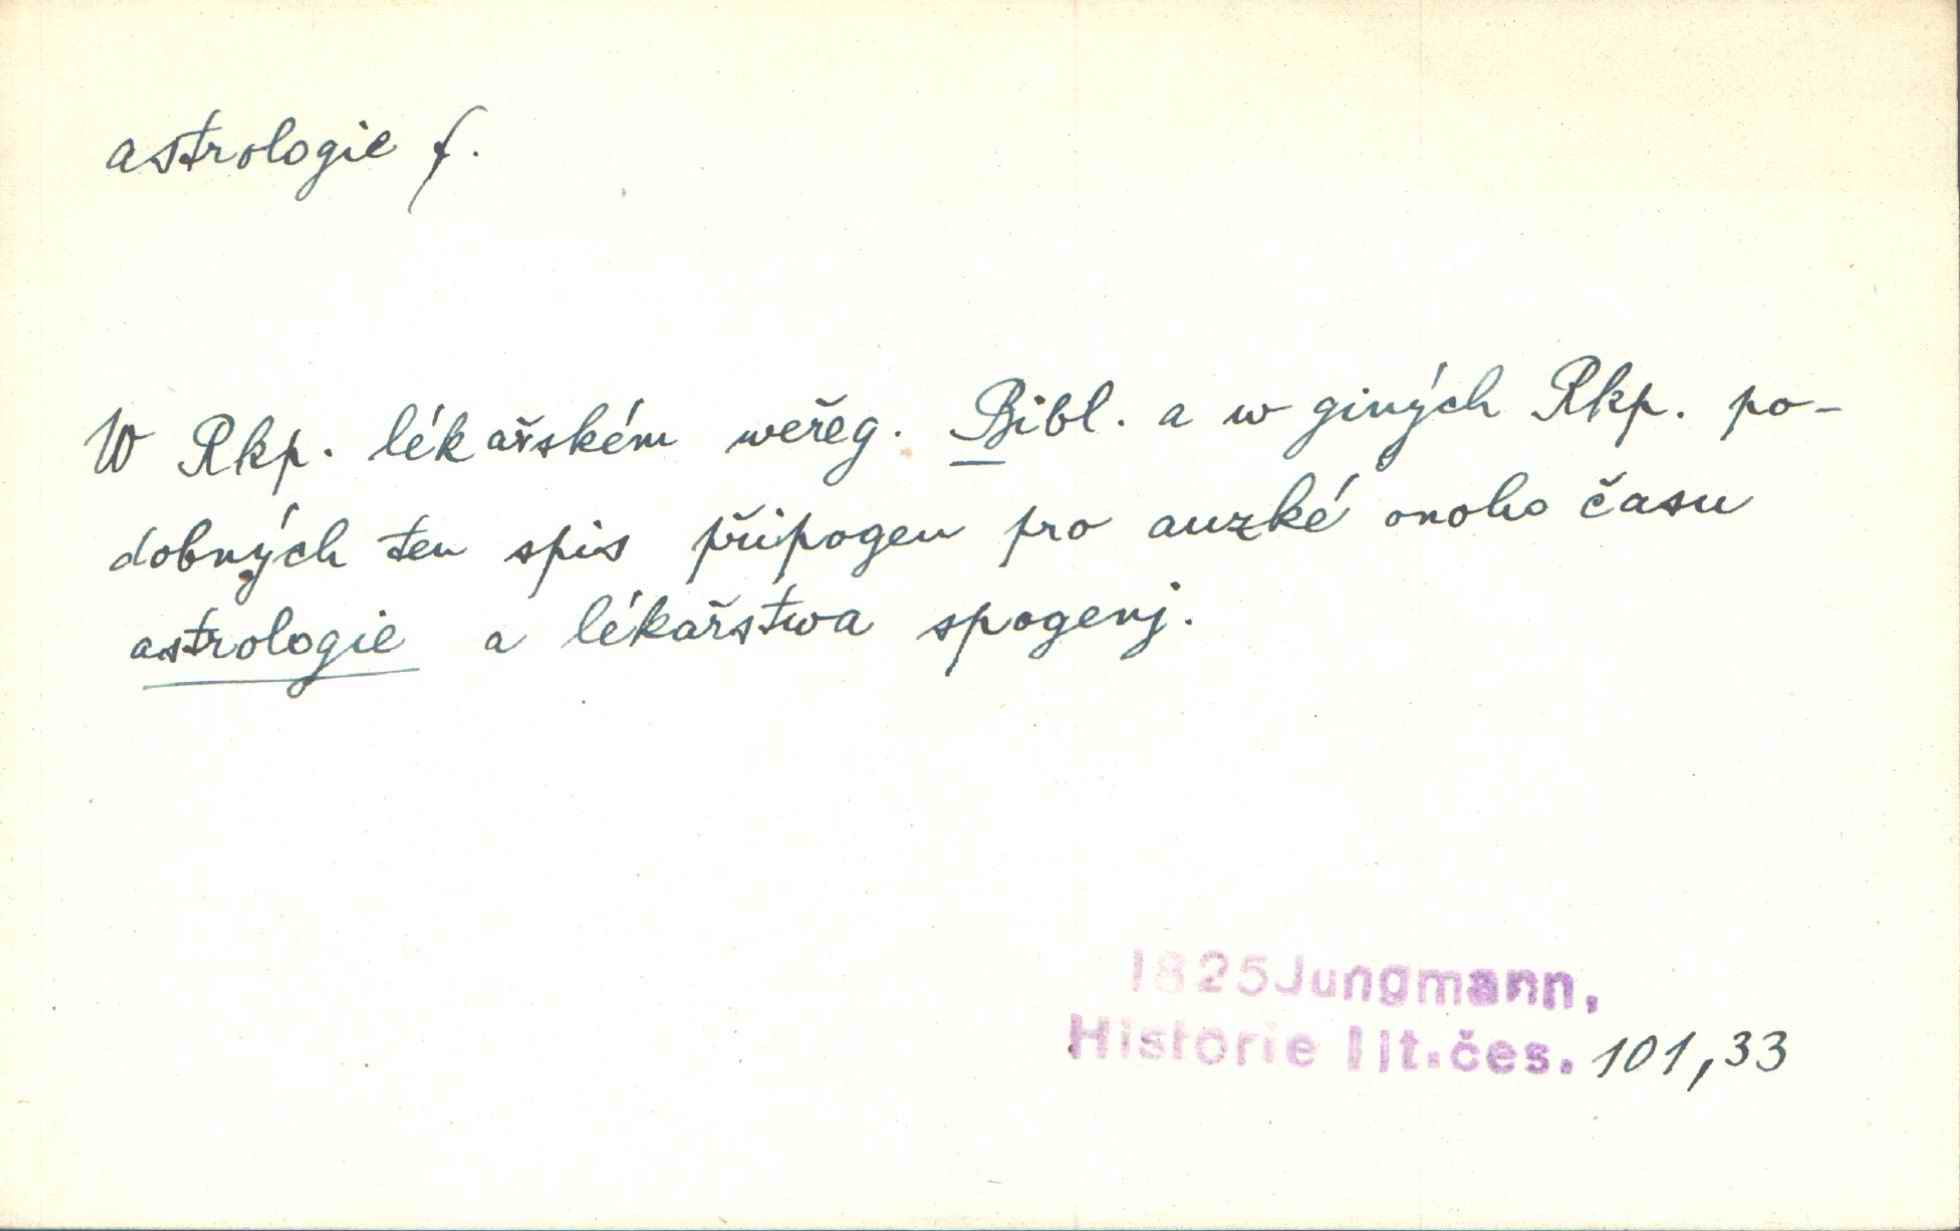 astrologie f.
W Rkp. lékařském weřeg. Bibl. a w giných Rkp. po-
dobných ten spis připogen pro auzké onoho času
astrologie a lékařstwa spogenj.
1825 Jungmann,
Historie lit. čes. 101,33